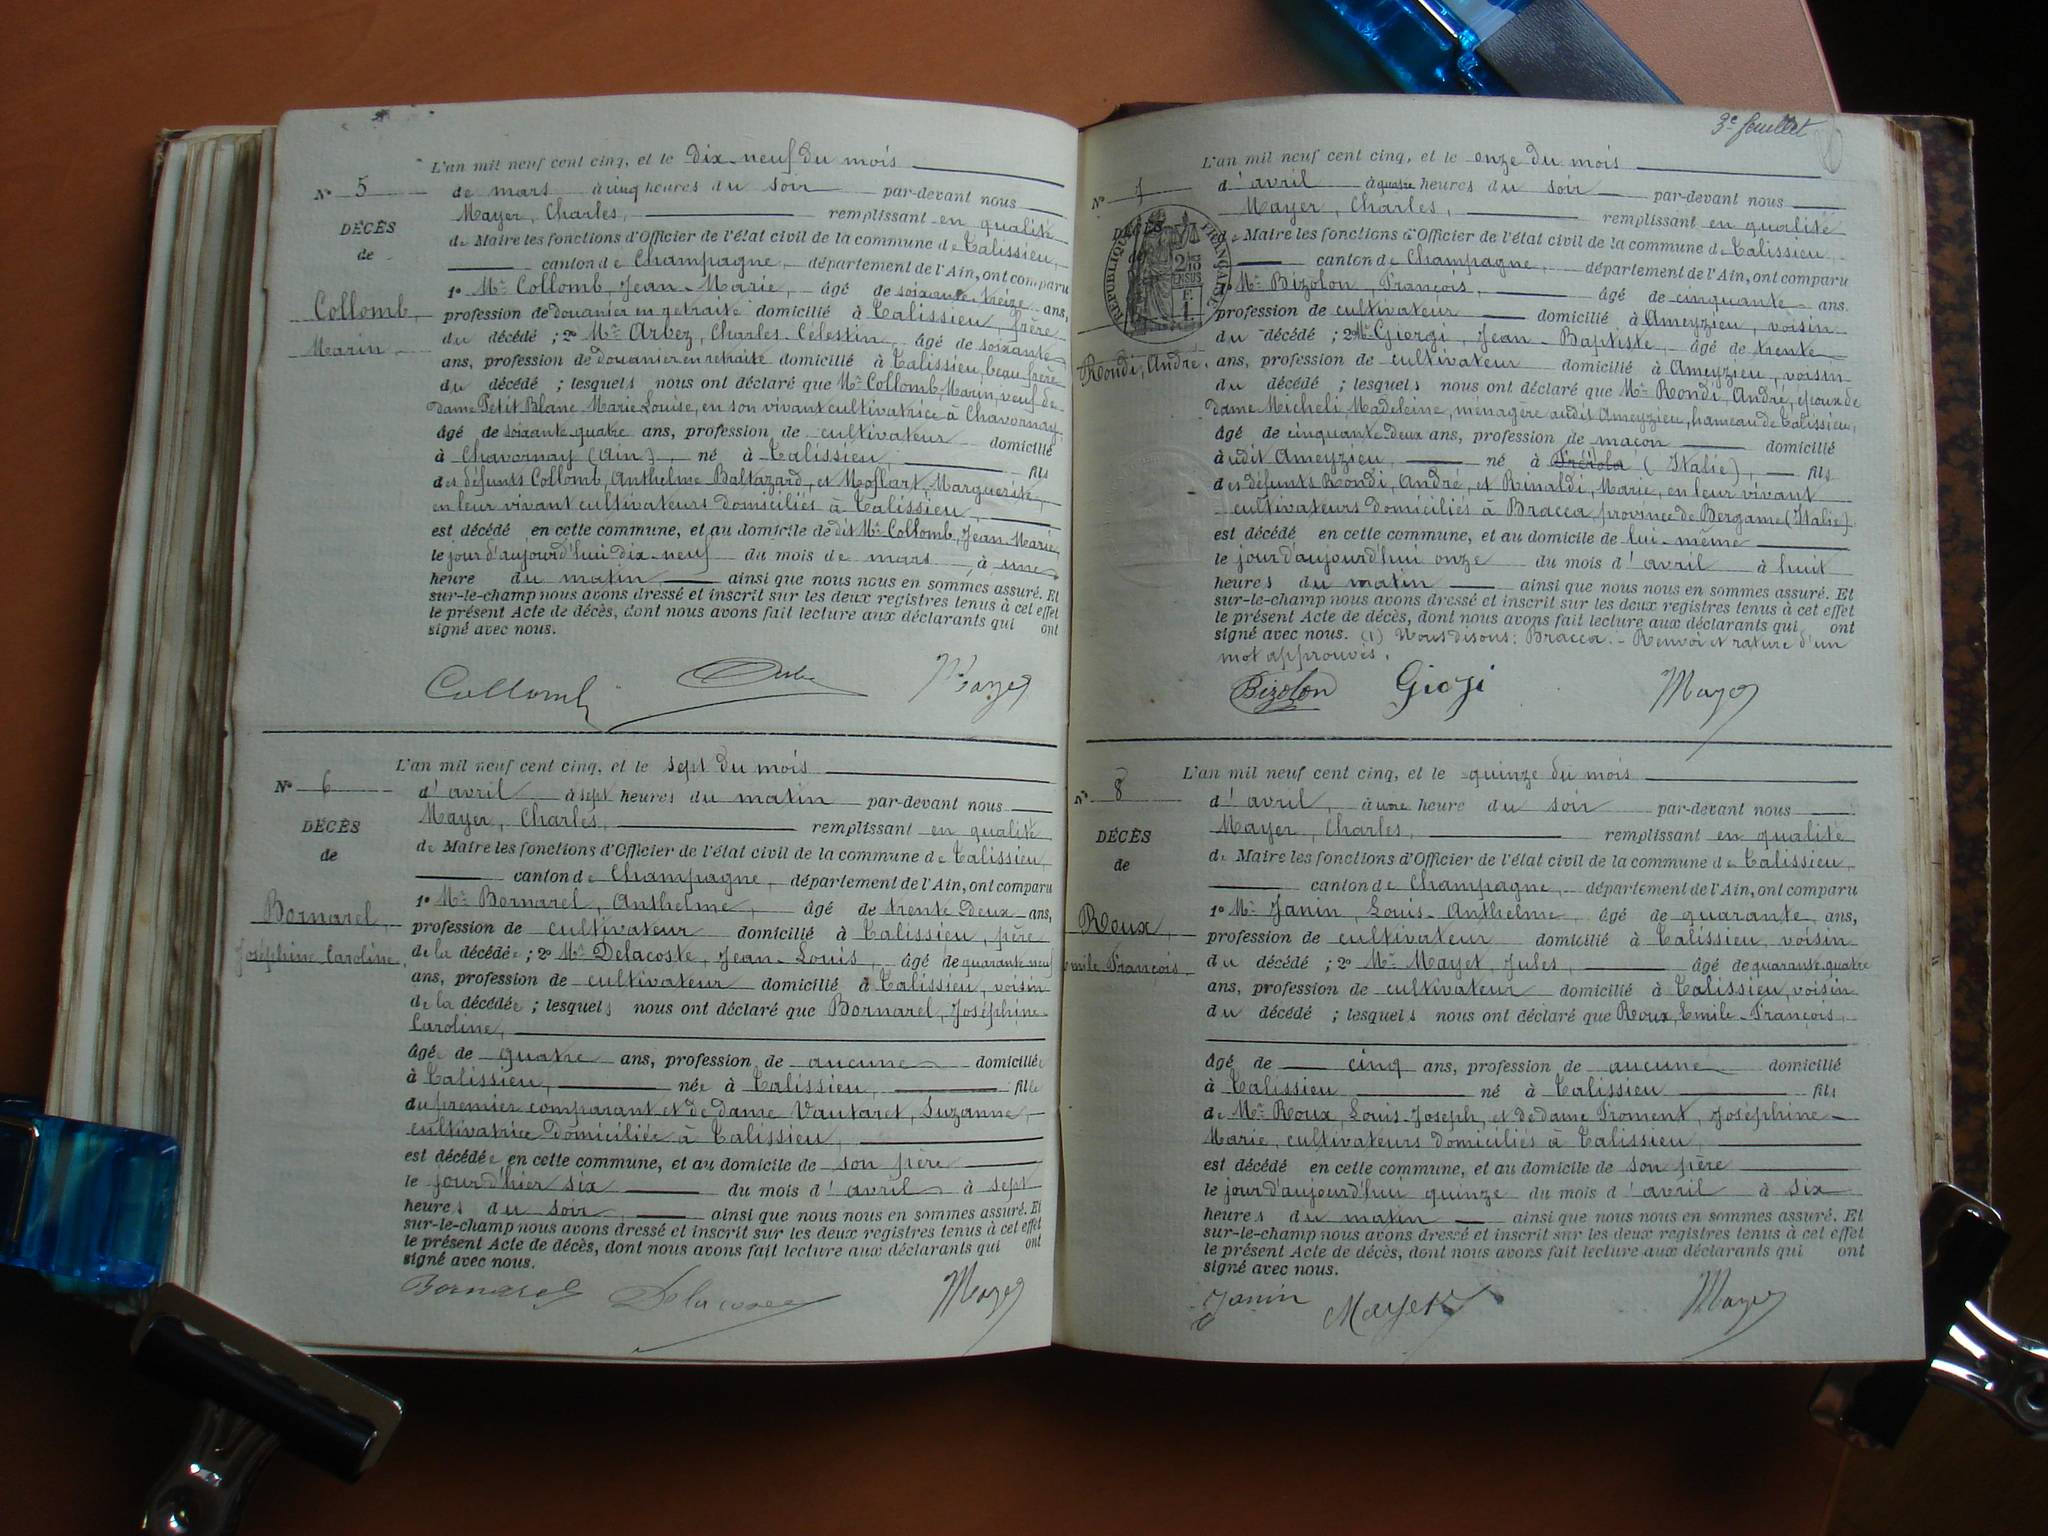 L'an mil neuf cent cinq, et le dix-neuf du mois
N° 5
de mars à cinq heures du soir par-devant nous
Mayer, Charles, remplissant en qualité
DÉCÈS
de Maire les fonctions d'Officier de l'état civil de la commune de Talissieu,
de
canton de Champagne, département de l'Ain, ont comparu
1° Mr Collomb, Jean-Marie, âgé de soixante-treize ans,
Collomb,
profession de douanier en retraite domicilié à Talissieu, frère
du décédé ; 2° Mr Arbez, Charles Célestin, âgé de soixante
Marin
ans, profession de douanier en retraite domicilié à Talissieu, beau frère
du décédé ; lesquels nous ont déclaré que Mr Collomb, Marin, veuf de
dame Petit Blanc Marie Louise, en son vivant cultivatrice à Chavornay,
âgé de soixante quatre ans, profession de cultivateur domicilié
à Chavornay (Ain), né à Talissieu, fils
des défunts Collomb, Anthelme Baltazard, et Marguerite,
en leur vivant cultivateurs domiciliés à Talissieu,
est décédé en cette commune, et au domicile de dit Mr Collomb, Jean Marie,
le jour d'aujourd'hui dix-neuf du mois de mars à une
heure du matin ainsi que nous nous en sommes assuré. Et
sur-le-champ nous avons dressé et inscrit sur les deux registres tenus à cet effet
le présent Acte de décès, dont nous avons fait lecture aux déclarants qui ont
signé avec nous.
Collomb Mayer
L'an mil neuf cent cinq, et le sept du mois
N° 6
d'avril à sept heures du matin par-devant nous
Mayer, Charles, remplissant en qualité
DÉCÈS
de Maire les fonctions d'Officier de l'état civil de la commune de Talissieu,
de
canton de Champagne, département de l'Ain, ont comparu
1° Mr Bornarel, Anthelme, âgé de trente deux ans,
Bornarel,
profession de cultivateur domicilié à Talissieu, père
Joséphine Caroline,
de la décédée ; 2° Mr Delacoste, Jean-Louis, âgé de quarante neuf
ans, profession de cultivateur domicilié à Talissieu, voisin
de la décédée ; lesquels nous ont déclaré que Bornarel, Joséphine
Caroline,
âgée de quatre ans, profession de aucune domiciliée
à Talissieu, née à Talissieu, fille
du premier comparant et de dame Vautaret, Suzanne,
cultivatrice domiciliée à Talissieu,
est décédée en cette commune, et au domicile de son père
le jour d'hier six du mois d'avril à sept
heures du soir, ainsi que nous nous en sommes assuré. Et
sur-le-champ nous avons dressé et inscrit sur les deux registres tenus à cet effet
le présent Acte de décès, dont nous avons fait lecture aux déclarants qui ont
signé avec nous.
Bornarel Delacoste Mayer
3e feuillet
L'an mil neuf cent cinq, et le onze du mois
N° 7
d'avril à quatre heures du soir par-devant nous
Mayer, Charles, remplissant en qualité
DÉCÈS
de Maire les fonctions d'Officier de l'état civil de la commune de Talissieu,
de
RÉPUBLIQUE FRANÇAISE
canton de Champagne, département de l'Ain, ont comparu
1° Mr Bizolon, François, âgé de cinquante ans,
profession de cultivateur domicilié à Ameyzieu, voisin
du décédé ; 2° Mr Giorgi, Jean-Baptiste, âgé de trente
Rondi, André,
ans, profession de cultivateur domicilié à Ameyzieu, voisin
du décédé ; lesquels nous ont déclaré que Mr Rondi, André, époux de
dame Micheli, Madeleine, ménagère audit Ameyzieu, hameau de Talissieu,
âgé de cinquante-deux ans, profession de maçon domicilié
à udit Ameyzieu, né à (Italie), fils
des défunts Rondi, André, et Rinaldi, Marie, en leur vivant
cultivateurs domiciliés à Bracca, province de Bergame (Italie)
est décédé en cette commune, et au domicile de lui-même
le jour d'aujourd'hui onze du mois d'avril à huit
heures du matin ainsi que nous nous en sommes assuré. Et
sur-le-champ nous avons dressé et inscrit sur les deux registres tenus à cet effet
le présent Acte de décès, dont nous avons fait lecture aux déclarants qui ont
signé avec nous. (1) Nous disons: Bracca. - Renvoi et rature d'un
mot approuvés.
Bizolon Giorgi Mayer
L'an mil neuf cent cinq, et le quinze du mois
N° 8
d'avril, à une heure du soir par-devant nous
Mayer, Charles, remplissant en qualité
DÉCÈS
de Maire les fonctions d'Officier de l'état civil de la commune de Talissieu,
de
canton de Champagne, département de l'Ain, ont comparu
1° Mr Janin, Louis-Anthelme, âgé de quarante ans,
Roux,
profession de cultivateur domicilié à Talissieu, voisin
Emile François
du décédé ; 2° Mr Mayet, Jules, âgé de quarante-quatre
ans, profession de cultivateur domicilié à Talissieu, voisin
du décédé ; lesquels nous ont déclaré que Roux, Emile-François,
âgé de cinq ans, profession de aucune domicilié
à Talissieu né à Talissieu fils
de Mr Roux, Louis-Joseph, et de dame Froment, Joséphine
Marie, cultivateurs domiciliés à Talissieu,
est décédé en cette commune, et au domicile de son père
le jour d'aujourd'hui quinze du mois d'avril à six
heures du matin ainsi que nous nous en sommes assuré. Et
sur-le-champ nous avons dressé et inscrit sur les deux registres tenus à cet effet
le présent Acte de décès, dont nous avons fait lecture aux déclarants qui ont
signé avec nous.
Janin Mayet Mayer